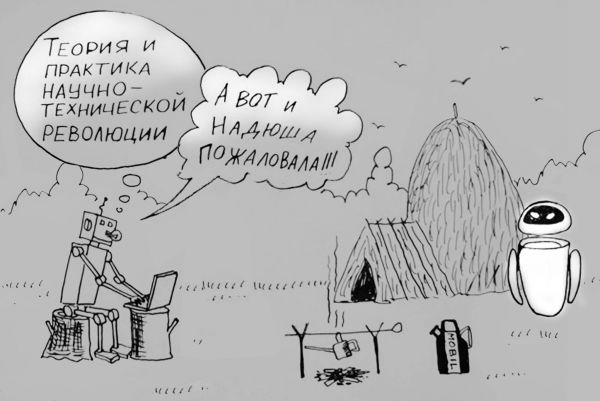 ТЕОРИЯ И
ПРАКТИКА
НАУЧНО-
ТЕХНИЧЕСКОЙ
РЕВОЛЮЦИИ
А ВОТ И
НАДЮША
ПОЖАЛОВАЛА!!!
MOBIL